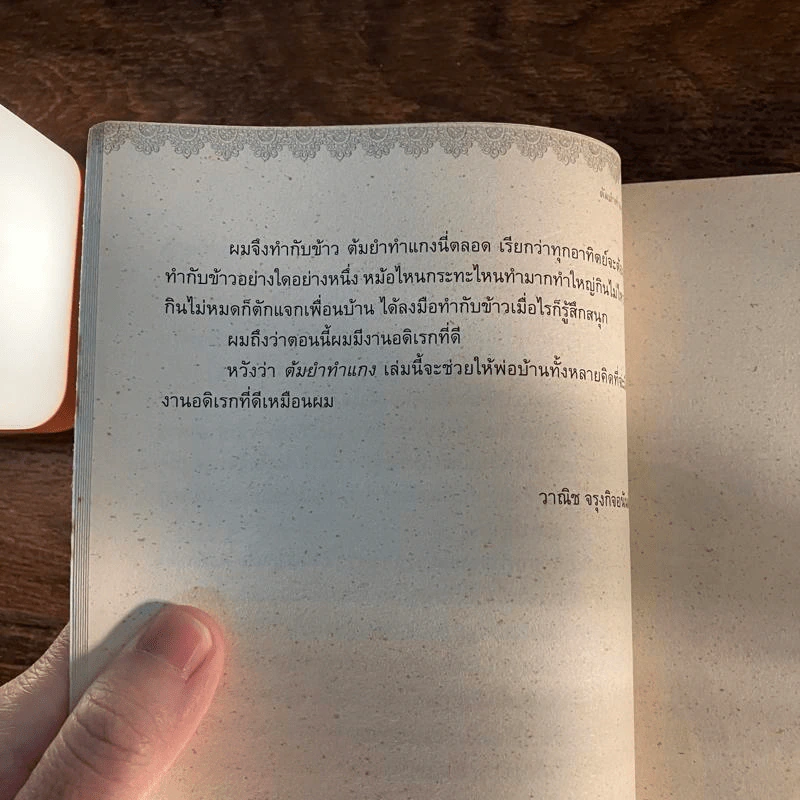 ต้มยำทำ
ผมจึงทำกับข้าว ต้มยำทำแกงนี่ตลอด เรียกว่าทุกอาทิตย์จะต้อง
ทำกับข้าวอย่างใดอย่างหนึ่ง หม้อไหนกระทะไหนทำมากทำใหญ่กินไม่ไหว
กินไม่หมดก็ตักแจกเพื่อนบ้าน ได้ลงมือทำกับข้าวเมื่อไรก็รู้สึกสนุก
ผมถึงว่าตอนนี้ผมมีงานอดิเรกที่ดี
หวังว่า ต้มยำทำแกง เล่มนี้จะช่วยให้พ่อบ้านทั้งหลายคิดที่จะ
งานอดิเรกที่ดีเหมือนผม
วาณิช จรุงกิจอนัน